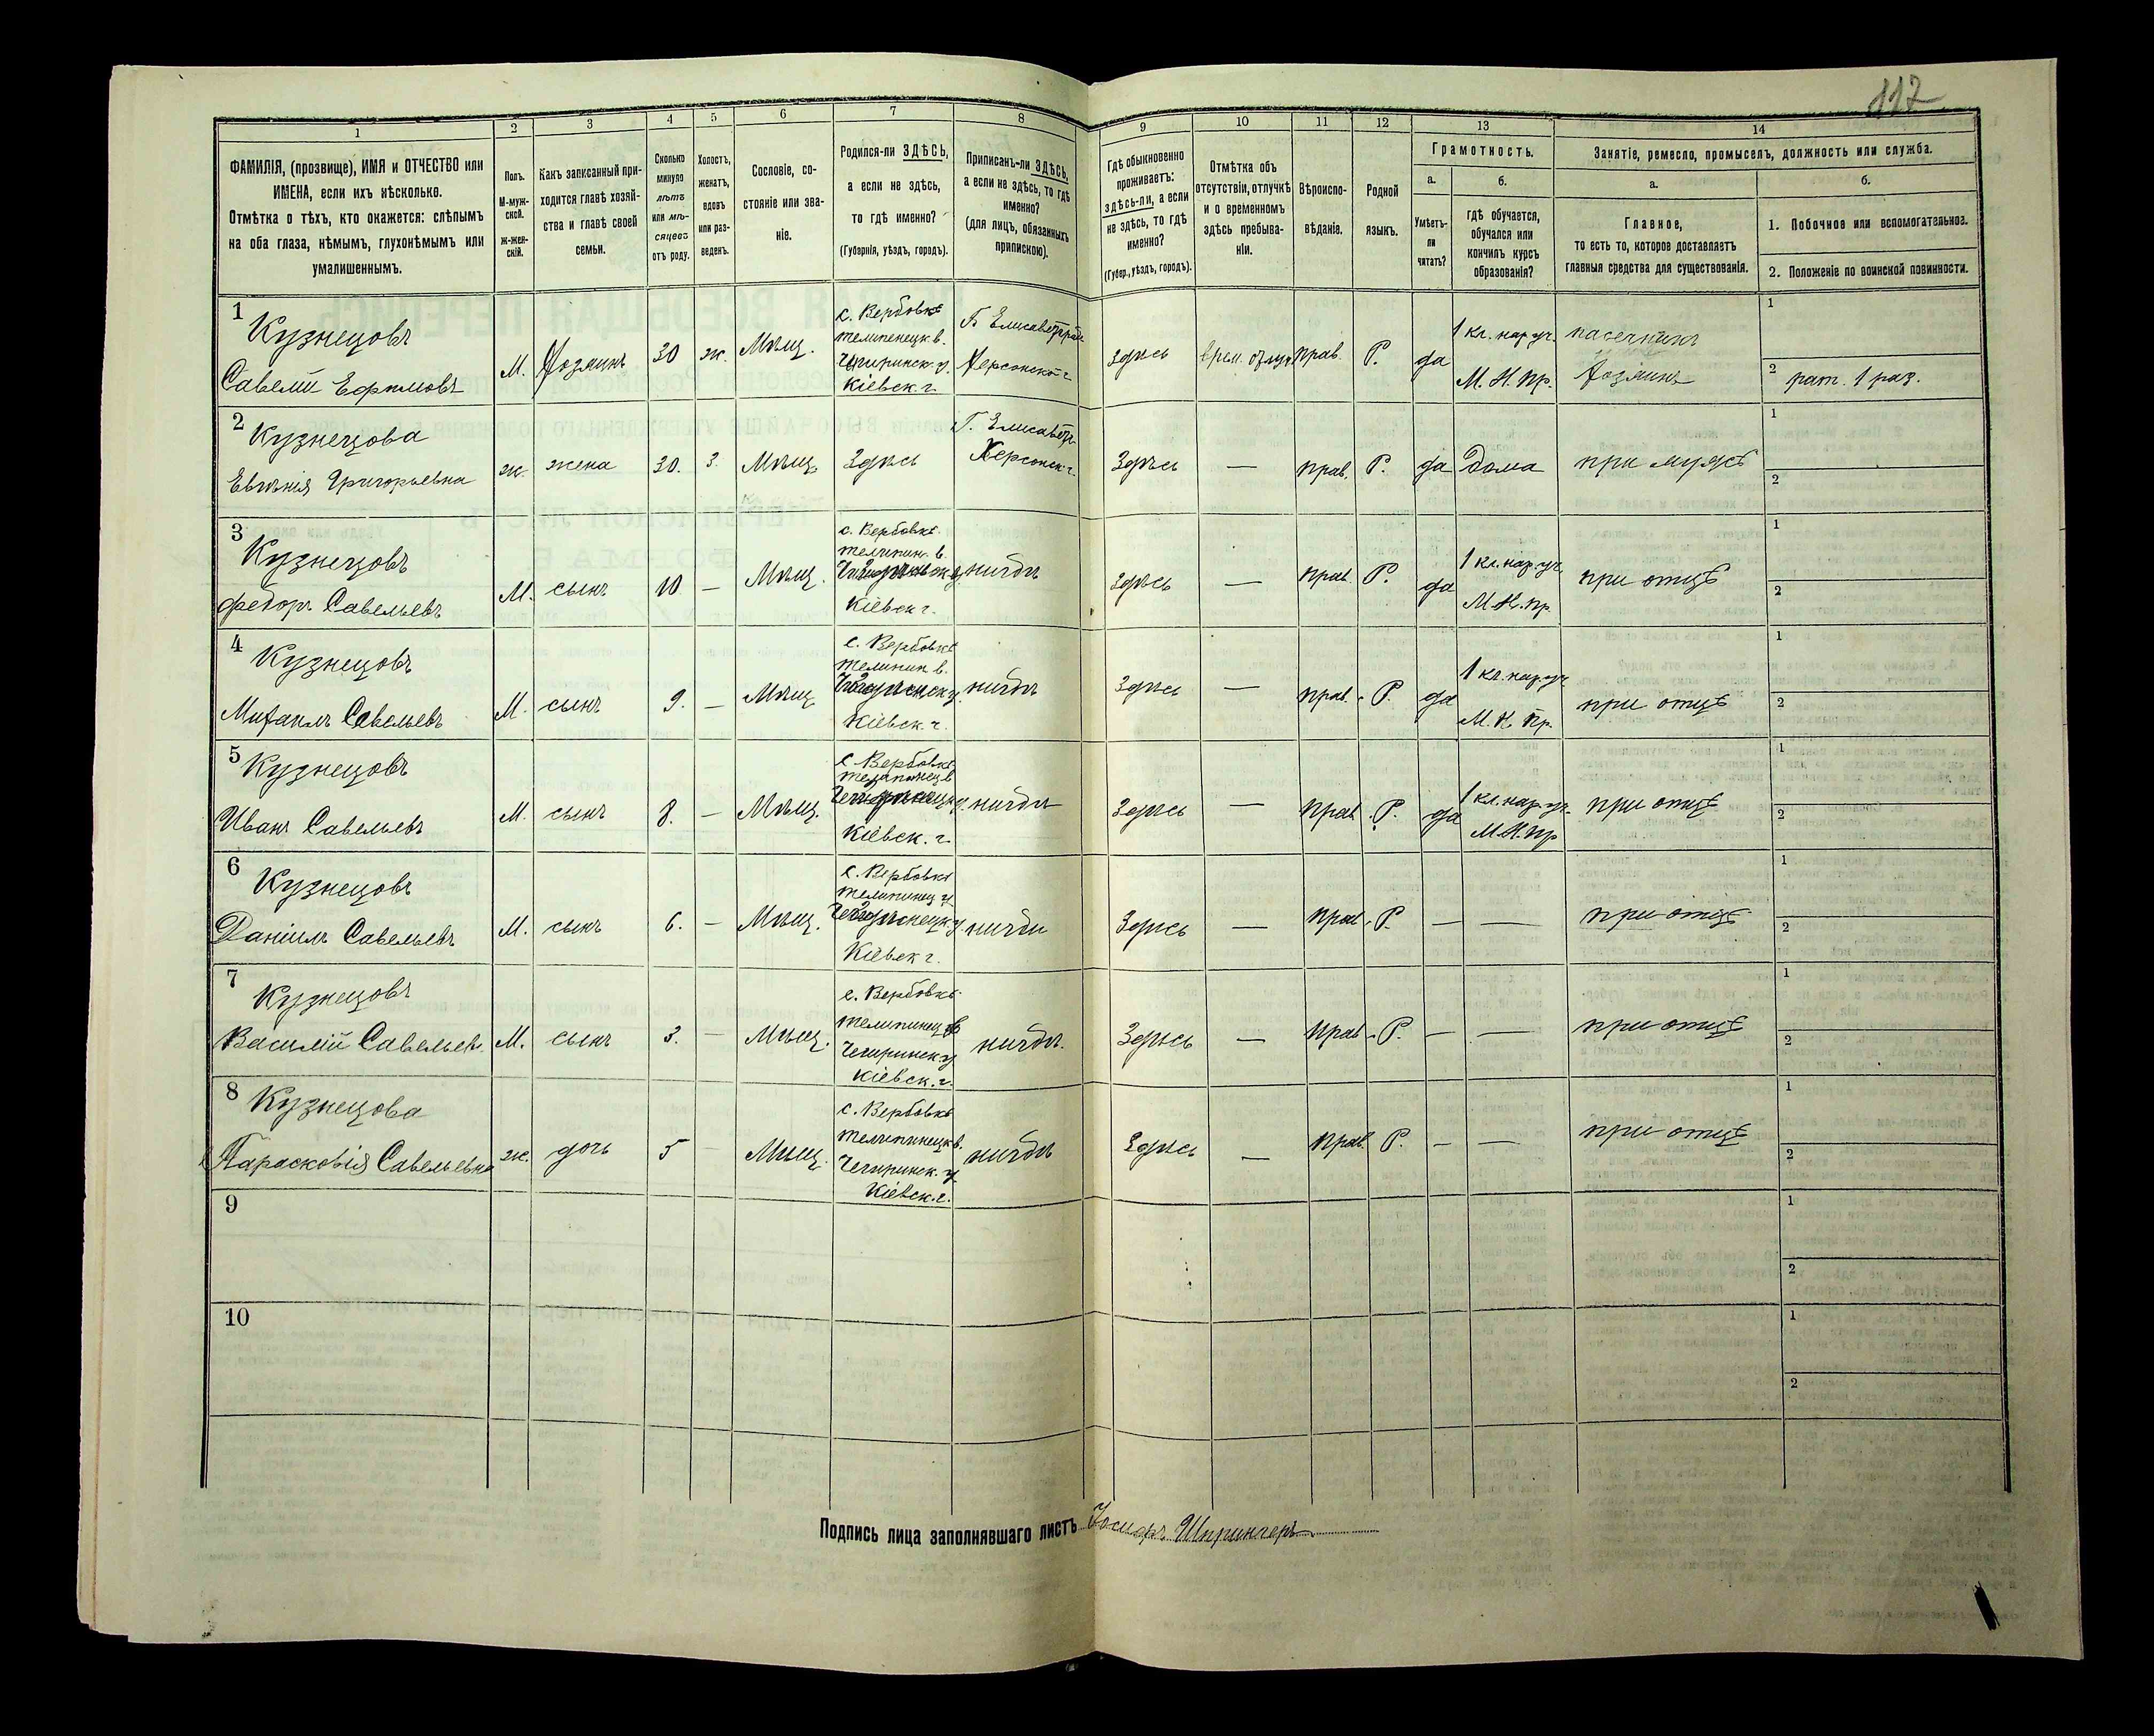 117
1 2 3 4 5 6 7 8 9 10 11 12 13 14
ФАМИЛІЯ, (прозвище), ИМЯ и ОТЧЕСТВО или
ИМЕНА, если ихъ нѣсколько.
Отмѣтка о тѣхъ, кто окажется: слѣпымъ
на оба глаза, нѣмымъ, глухонѣмымъ или
умалишеннымъ.
Полъ.
М-муж-
ской.
ж-жен-
скій.
Какъ записанный при-
ходится главѣ хозяй-
ства и главѣ своей
семьи.
Сколько
минуло
лѣтъ
или мѣ-
сяцевъ
отъ роду.
Холостъ,
женатъ,
вдовъ
или раз-
веденъ.
Сословіе, со-
стояніе или зва-
ніе.
Родился-ли ЗДѢСЬ,
а если не здѣсь,
то гдѣ именно?
(Губернія, уѣздъ, городъ).
Приписанъ-ли ЗДѢСЬ,
а если не здѣсь, то гдѣ
именно?
(для лицъ, обязанныхъ
припискою).
Гдѣ обыкновенно
проживаетъ:
здѣсь-ли, а если
не здѣсь, то гдѣ
именно?
(Губер., уѣздъ, городъ).
Отмѣтка объ
отсутствіи, отлучкѣ
и о временномъ
здѣсь пребыва-
ніи.
Вѣроиспо-
вѣданіе.
Родной
языкъ.
Грамотность.
а.
Умѣетъ-
ли
читать?
б.
гдѣ обучается,
обучался или
кончилъ курсъ
образованія?
Занятіе, ремесло, промыселъ, должность или служба.
а.
Главное,
то есть то, которое доставляетъ
главныя средства для существованія.
б.
1. Побочное или вспомогательное.
2. Положеніе по воинской повинности.
1
Кузнецовъ
Савелій Ефимовъ
М.
Хозяинъ
30
ж.
Мѣщ.
с. Вербовкѣ
Чигиринск. у.
Кіевск. г.
Херсонской г
здѣсь
прав.
Р.
да
1 кл. нар. уч.
М. Н. Пр.
пасечникъ
Хозяинъ
1
2 рат. 1 раз.
2
Кузнецова
Евгенія Григорьевна
ж.
жена
30.
з.
Мѣщ.
Здѣсь
Г. Елисаветгр.
Херсонск. г.
Здѣсь
—
прав.
Р.
да
Дома
при мужѣ
1
2
3
Кузнецовъ
Федоръ Савельевъ
М.
сынъ
10
—
Мѣщ.
с. Вербовкѣ
Кіевск г.
здѣсь
—
прав.
Р.
да
1 кл. нар. уч.
М. Н. Пр.
при отцѣ
1
2
4
Кузнецовъ
Михаилъ Савельевъ
М.
сынъ
9.
—
Мѣщ.
с. Вербовкѣ
Кіевск. г.
Здѣсь
—
прав.
Р.
да
1 кл. нар. уч.
М. Н. Пр.
при отцѣ
1
2
5
Кузнецовъ
Иванъ Савельевъ
М.
сынъ
8.
—
Мѣщ.
с. Вербовкѣ
Кіевск. г.
Здѣсь
—
прав.
Р.
да
1 кл. нар. уч.
М. Н. Пр
при отцѣ
1
2
6
Кузнецовъ
Даніилъ Савельевъ
М.
сынъ
6.
—
Мѣщ.
с. Вербовкѣ
Кіевск г.
Здѣсь
—
прав.
Р.
—
—
при отцѣ
1
2
7
Кузнецовъ
Василій Савельев.
М.
сынъ
3.
—
Мѣщ.
с. Вербовкѣ
Чегиринск. у
Кіевск. г.
Здѣсь
—
прав.
Р.
—
—
при отцѣ
1
2
8
Кузнецова
Парасковія Савельевна
ж.
дочь
5
—
Мѣщ.
с. Вербовкѣ
Чегиринск. у
Кіевск. г.
Здѣсь
—
прав.
Р.
—
—
при отцѣ
1
2
9
1
2
10
1
2
Подпись лица заполнявшаго листъ Іосифъ Шпрингеръ